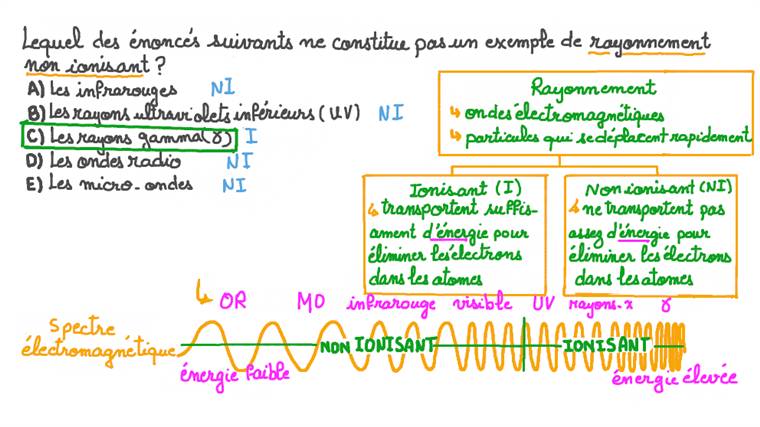 Lequel des énoncés suivants ne constitue pas un exemple de rayonnement
non ionisant ?
A) Les infrarouges NI
B) Les rayons ultraviolets inférieurs (UV) NI
C) Les rayons gamma (γ) I
D) Les ondes radio NI
E) Les micro-ondes NI
Rayonnement
↳ ondes électromagnétiques
↳ particules qui se déplacent rapidement
Ionisant (I)
↳ transportent suffis-
amment d'énergie pour
éliminer les électrons
dans les atomes
Non ionisant (NI)
↳ ne transportent pas
assez d'énergie pour
éliminer les électrons
dans les atomes
↳ OR MO infrarouge visible UV rayons-x γ
Spectre
électromagnétique
NON IONISANT IONISANT
énergie faible énergie élevée